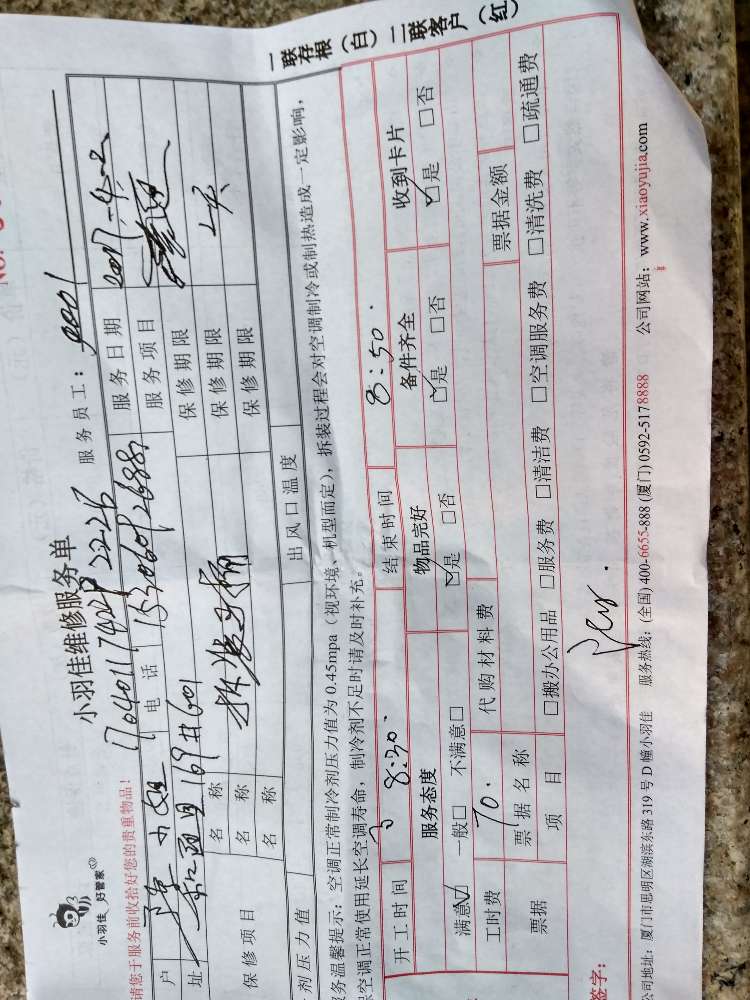 小羽佳 好管家
小羽佳维修服务单
请您于服务前收拾好您的贵重物品！
服务员工：
户 小姐 电话 服务日期
址 169#601 服务项目
保修项目 名称 拆装马桶 保修期限
名称 保修期限
名称 保修期限
剂压力值 出风口温度
务温馨提示：空调正常制冷剂压力值为 0.45mpa（视环境、机型而定），拆装过程会对空调制冷或制热造成一定影响，
保空调正常使用延长空调寿命，制冷剂不足时请及时补充。
开工时间 8:30 结束时间 8:50
服务态度 物品完好 备件齐全 收到卡片
满意☑ 一般□ 不满意□ ☑是 □否 ☑是 □否 ☑是 □否
工时费 70. 代购材料费
票据 票据名称 票据金额
项目 □搬办公用品 □服务费 □清洁费 □空调服务费 □清洗费 □疏通费
签字：
公司地址：厦门市思明区湖滨东路 319 号 D 幢小羽佳 服务热线：(全国) 400-6655-888 (厦门) 0592-5178888 公司网站：www.xiaoyujia.com
一联存根（白） 二联客户（红）